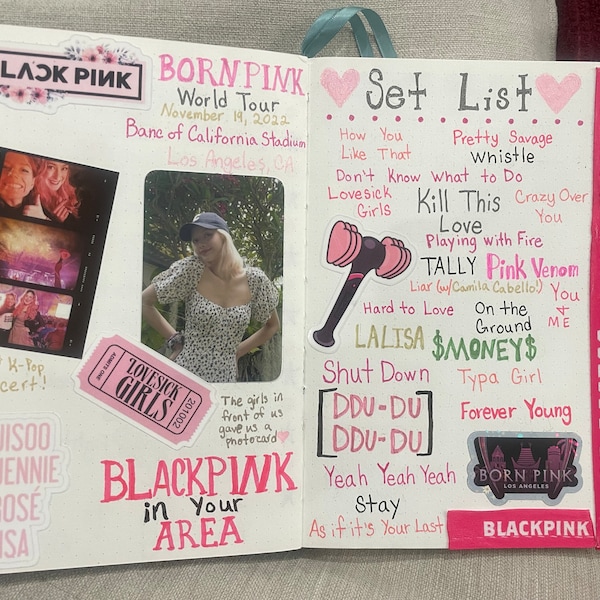 BLACKPINK
BORN PINK
World Tour
November 19, 2022
Banc of California Stadium
Los Angeles, CA
t K-Pop
cert!
ADMITS ONE
LOVESICK
GIRLS
201002
The girls in
front of us
gave us a
photocard
JISOO
JENNIE
ROSÉ
ISA
BLACKPINK
in Your
AREA
Set List
How You
Like That
Pretty Savage
Whistle
Don't Know What to Do
Lovesick
Girls
Kill This
Love
Crazy Over
You
Playing with Fire
TALLY
Pink Venom
Liar (w/Camila Cabello!)
You
&
ME
Hard to Love
On the
Ground
LALISA
$MONEY$
Shut Down
Typa Girl
[DDU-DU
DDU-DU]
Forever Young
Yeah Yeah Yeah
Stay
As if it's Your Last
BORN PINK
LOS ANGELES
BLACKPINK